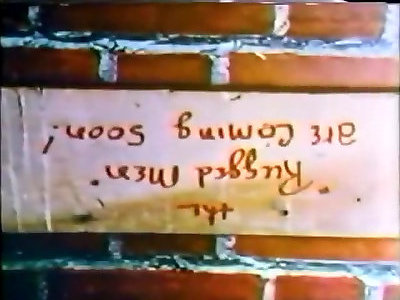 the
"Rugged Men"
are Coming Soon!